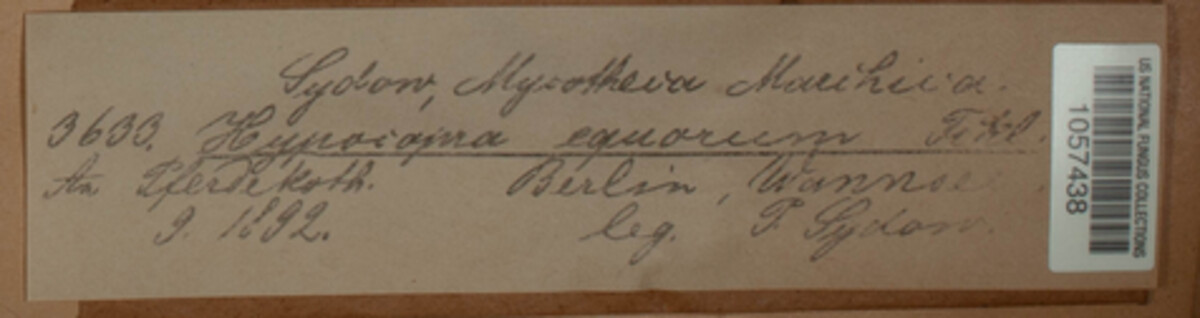 Sydow, Mycotheca Marchica.
3633. Hypocopra equorum Fckl.
An Pferdekoth. Berlin, Wannsee.
9. 1892. leg. P. Sydow.
US NATIONAL FUNGUS COLLECTIONS
1057438